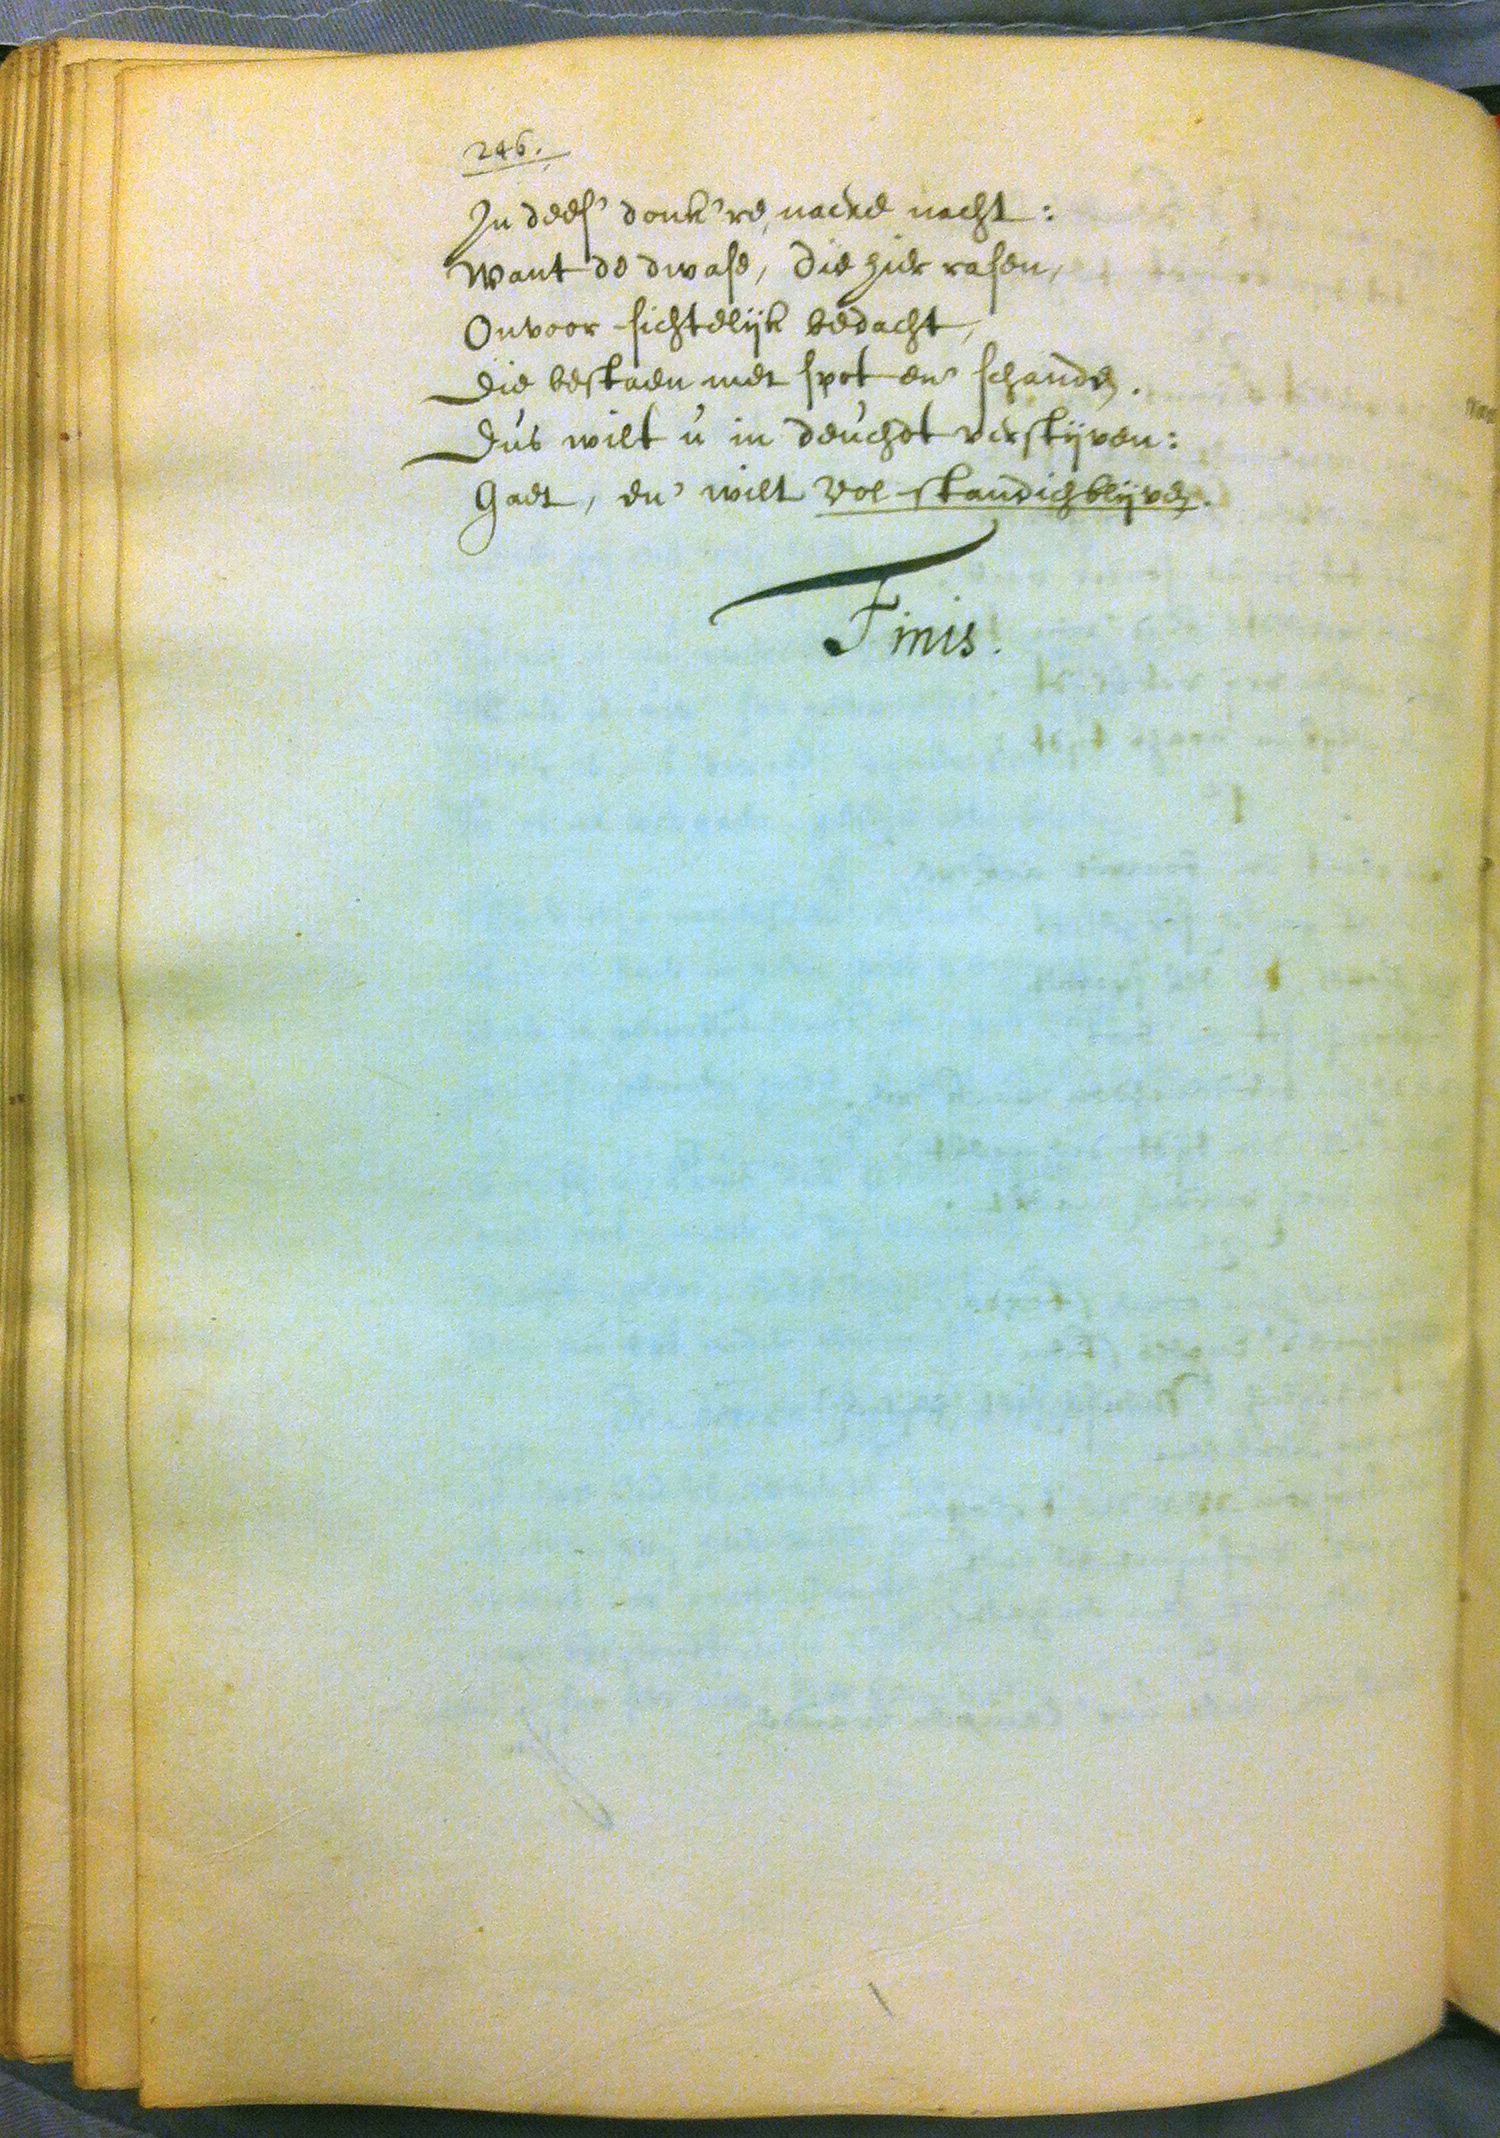 246.
In dees' donk're, nacke nacht:
Want de dwase, die hier rasen,
Onvoorsichtelijk bedacht,
Die bestaen met spot en' schanden.
Dus wilt u in deucht verstijven:
Gaet, en' wilt volstandigh blijven.
Finis.